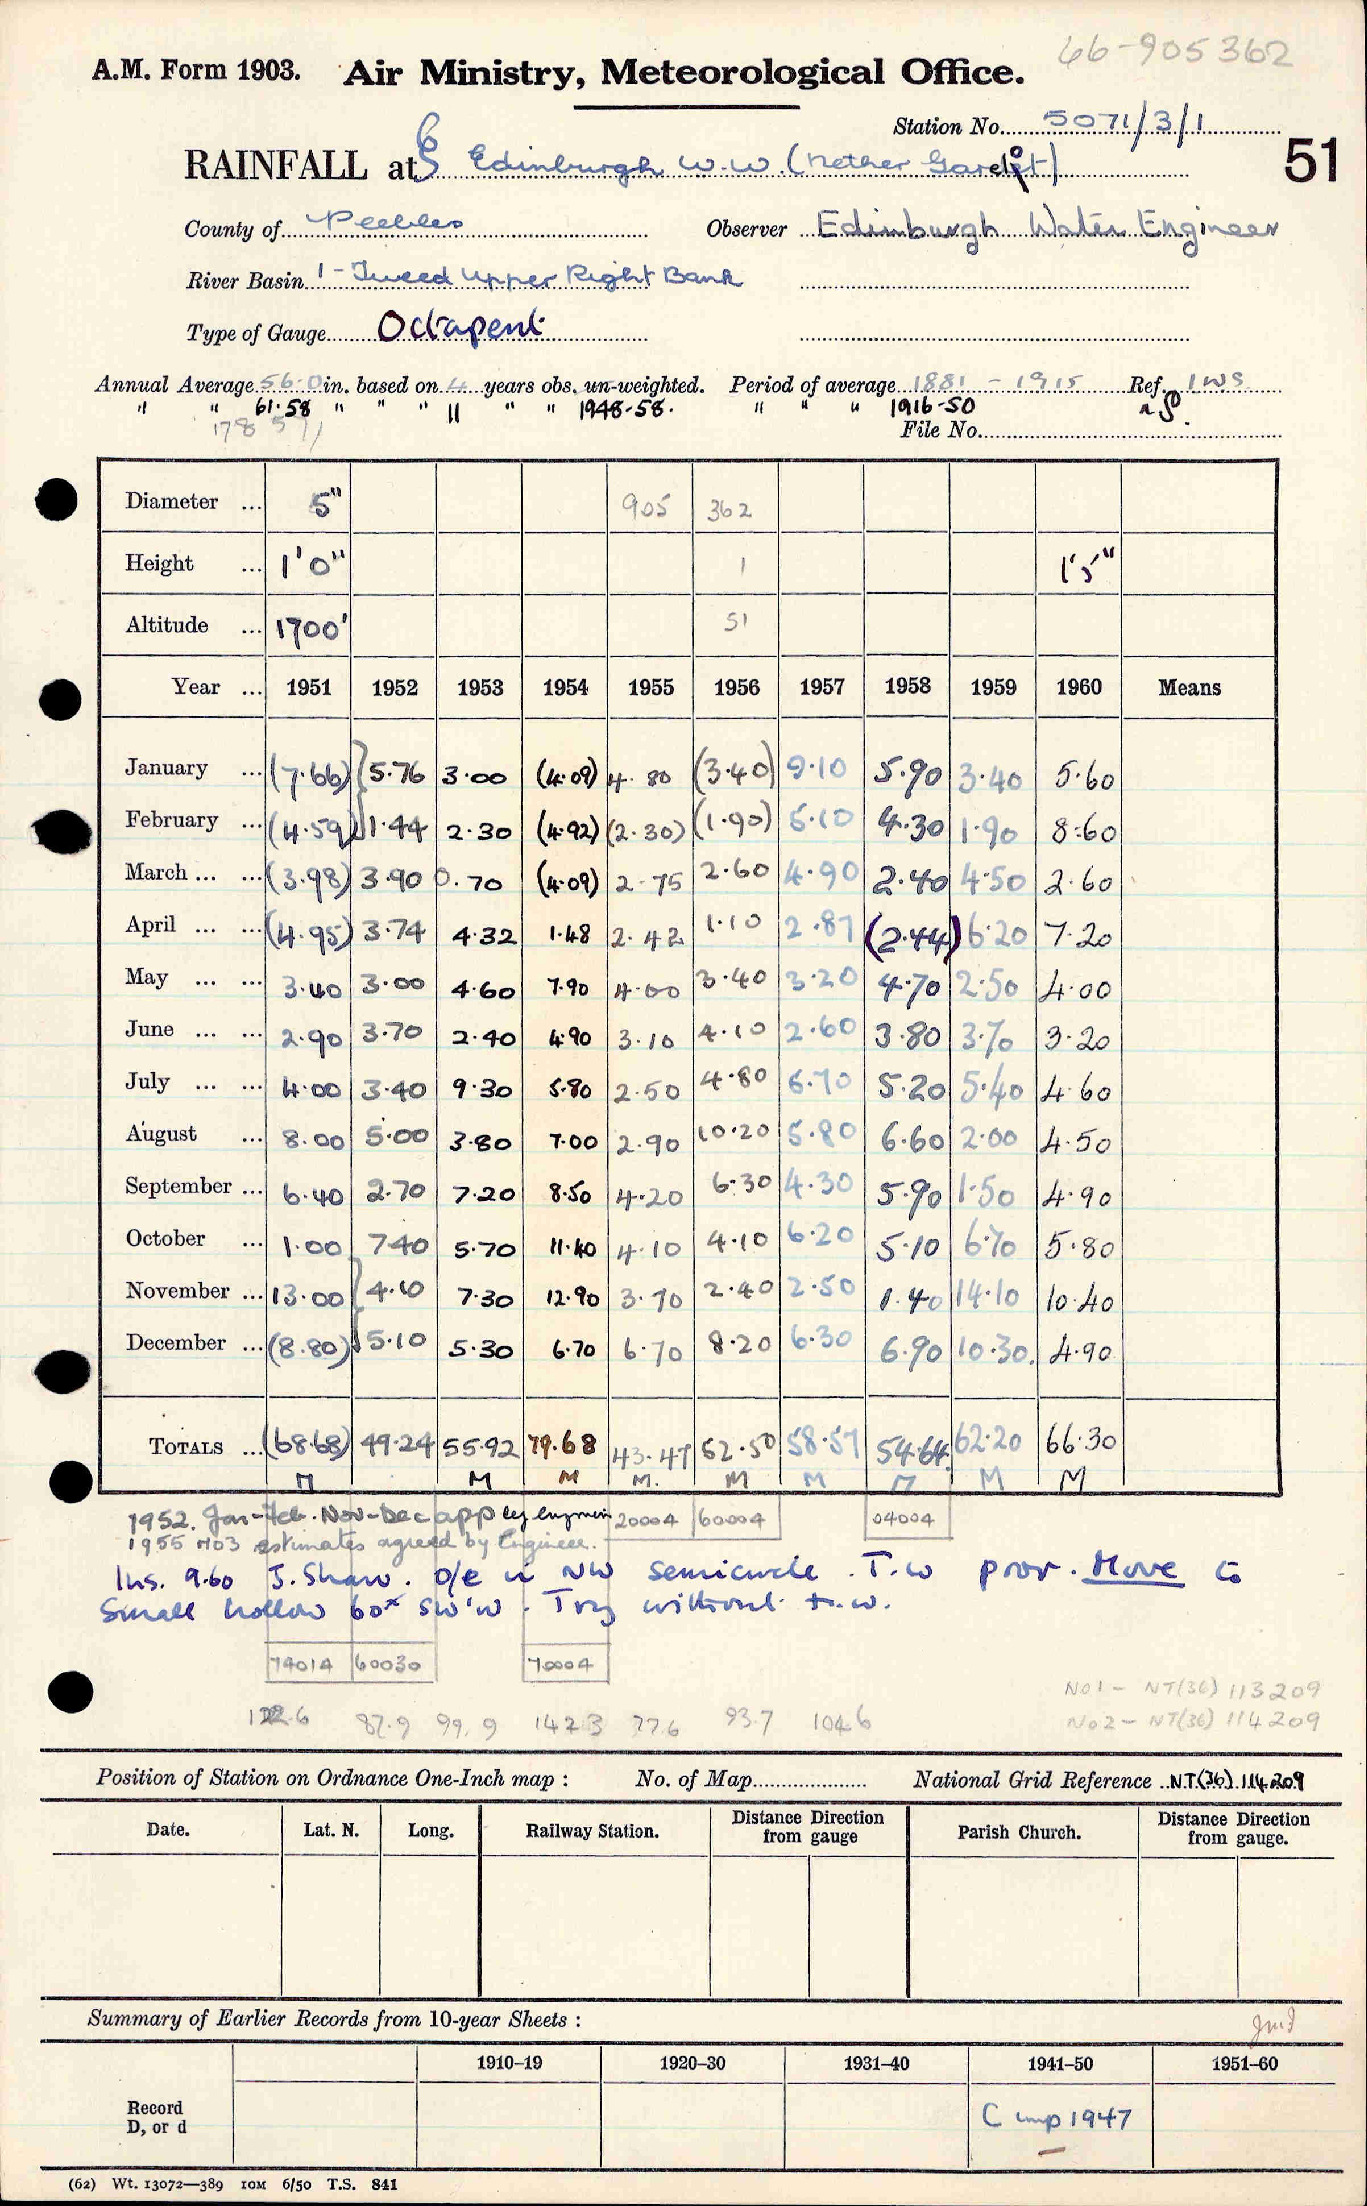 66-905362
A.M. Form 1903. Air Ministry, Meteorological Office.
Station No. 5071/3/1
51
RAINFALL at Edinburgh W.W. (Nether
County of Peebles Observer Edinburgh Water Engineer
River Basin 1 - Tweed Upper Right Bank
Type of Gauge Octapent
Annual Average 56.0 in. based on 4 years obs. un-weighted. Period of average 1881 - 1915 Ref. IWS
" " 61.58 " " " 11 " " 1948-58. " " " 1916-50
178
File No.
Diameter ... 5" 905 362
Height ... 1'0" 1 1'5"
Altitude ... 1700' 51
Year ... 1951 1952 1953 1954 1955 1956 1957 1958 1959 1960 Means
January ... (7.66) 5.76 3.00 (4.09) 4.80 (3.40) 9.10 5.90 3.40 5.60
February ... (4.59) 1.44 2.30 (4.92) (2.30) (1.90) 5.10 4.30 1.90 8.60
March ... ... (3.98) 3.90 0.70 (4.09) 2.75 2.60 4.90 2.40 4.50 2.60
April ... ... (4.95) 3.74 4.32 1.48 2.42 1.10 2.87 (2.44) 6.20 7.20
May ... ... 3.40 3.00 4.60 7.90 4.00 3.40 3.20 4.70 2.50 4.00
June ... ... 2.90 3.70 2.40 4.90 3.10 4.10 2.60 3.80 3.70 3.20
July ... ... 4.00 3.40 9.30 5.80 2.50 4.80 5.70 5.20 5.40 4.60
August ... 8.00 5.00 3.80 7.00 2.90 10.20 5.80 6.60 2.00 4.50
September ... 6.40 2.70 7.20 8.50 4.20 6.30 4.30 5.90 1.50 4.90
October ... 1.00 7.40 5.70 11.40 4.10 4.10 6.20 5.10 6.70 5.80
November ... 13.00 4.10 7.30 12.90 3.70 2.40 2.50 1.40 14.10 10.40
December ... (8.80) 5.10 5.30 6.70 6.70 8.20 6.30 6.90 10.30. 4.90
TOTALS ... (68.68) 49.24 55.92 79.68 43.47 52.50 58.57 54.64 62.20 66.30
M M M M. M M M M M
1952. Jan-Feb. Nov-Dec app by Engineer 20004 60004 04004
1955 M03 estimates agreed by Engineer.
Ins. 9.60 J. Shaw. o/e in NW semicircle. T.W prov. Move to
small hollow 60x SW'W. Try without t.w.
74014 60030 70004
No1 - NT(36) 113209
122.6 87.9 99.9 142.3 77.6 93.7 104.6
No2 - NT(36) 114209
Position of Station on Ordnance One-Inch map : No. of Map National Grid Reference NT(36) 114209
Date. Lat. N. Long. Railway Station. Distance Direction from gauge Parish Church. Distance Direction from gauge.
Summary of Earlier Records from 10-year Sheets :
1910–19 1920–30 1931–40 1941–50 1951–60
Record
D, or d
C imp 1947
(62) Wt. 13072—389 10M 6/50 T.S. 841